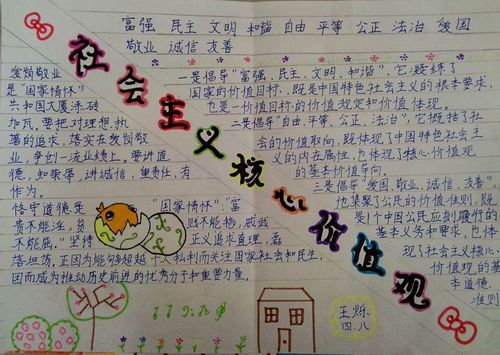 富强 民主 文明 和谐 自由 平等 公正 法治 爱国
敬业 诚信 友善
社会主义核心价值观
爱岗敬业
是"国家情怀"
共和国大厦添砖
加瓦。要把对理想,执
着的追求,落实在爱岗敬
业,争创一流业绩上。要讲道
德,知荣辱,讲诚信,重责任,有
作为。
恪守道德是"国家情怀"。富
贵不能淫,贫贱不能移,威武
不能屈。"坚持正义追求真理,磊
落坦荡,正因为能够超越个人私利而关注国家社会和民生,
因而成为推动历史前进的优秀分子和重要力量。
一是倡导"富强、民主、文明、和谐",它凝练了
国家的价值目标,既是中国特色社会主义的根本要求,
也是一价值目标的价值规定和价值体现。
二是倡导"自由、平等、公正、法治",它概括了社
会的价值取向,既体现了中国特色社会主
义的内在属性,也体现了核心价值观
的基本价值导向。
三是倡导"爱国,敬业,诚信,友善"
他集聚了公民的价值准则,既
是中国公民应当履行的
基本义务和要求,也体
现了社会主义核心
价值观的基
本道德
准则
王烁
四.八